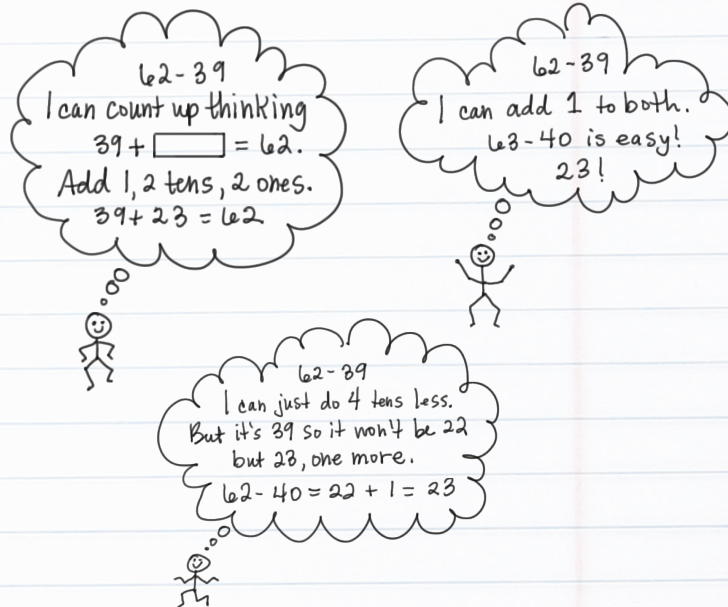 62-39
I can count up thinking
39 + = 62.
Add 1, 2 tens, 2 ones.
39 + 23 = 62
62-39
I can add 1 to both.
63-40 is easy!
23!
62-39
I can just do 4 tens less.
But it's 39 so it won't be 22
but 23, one more.
62-40=22+1=23